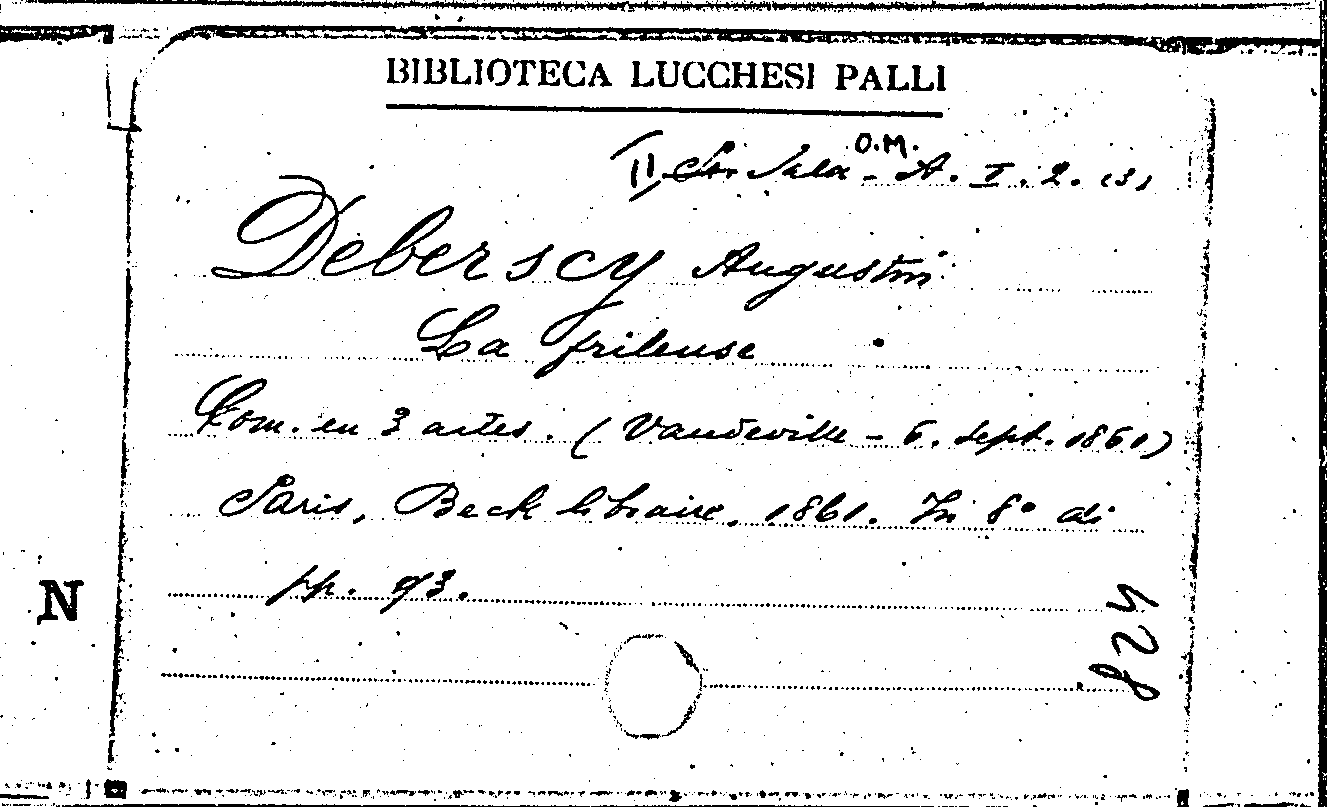 BIBLIOTECA LUCCHESI PALLI
O.M.
Sala - A. I. 2. (3)
Deberscy Augustin
La frileuse
Com. en 3 actes. (Vaudeville - 6. sept. 1861)
Paris, Beck libraire, 1861. In 8° di
pp. 93.
N
824